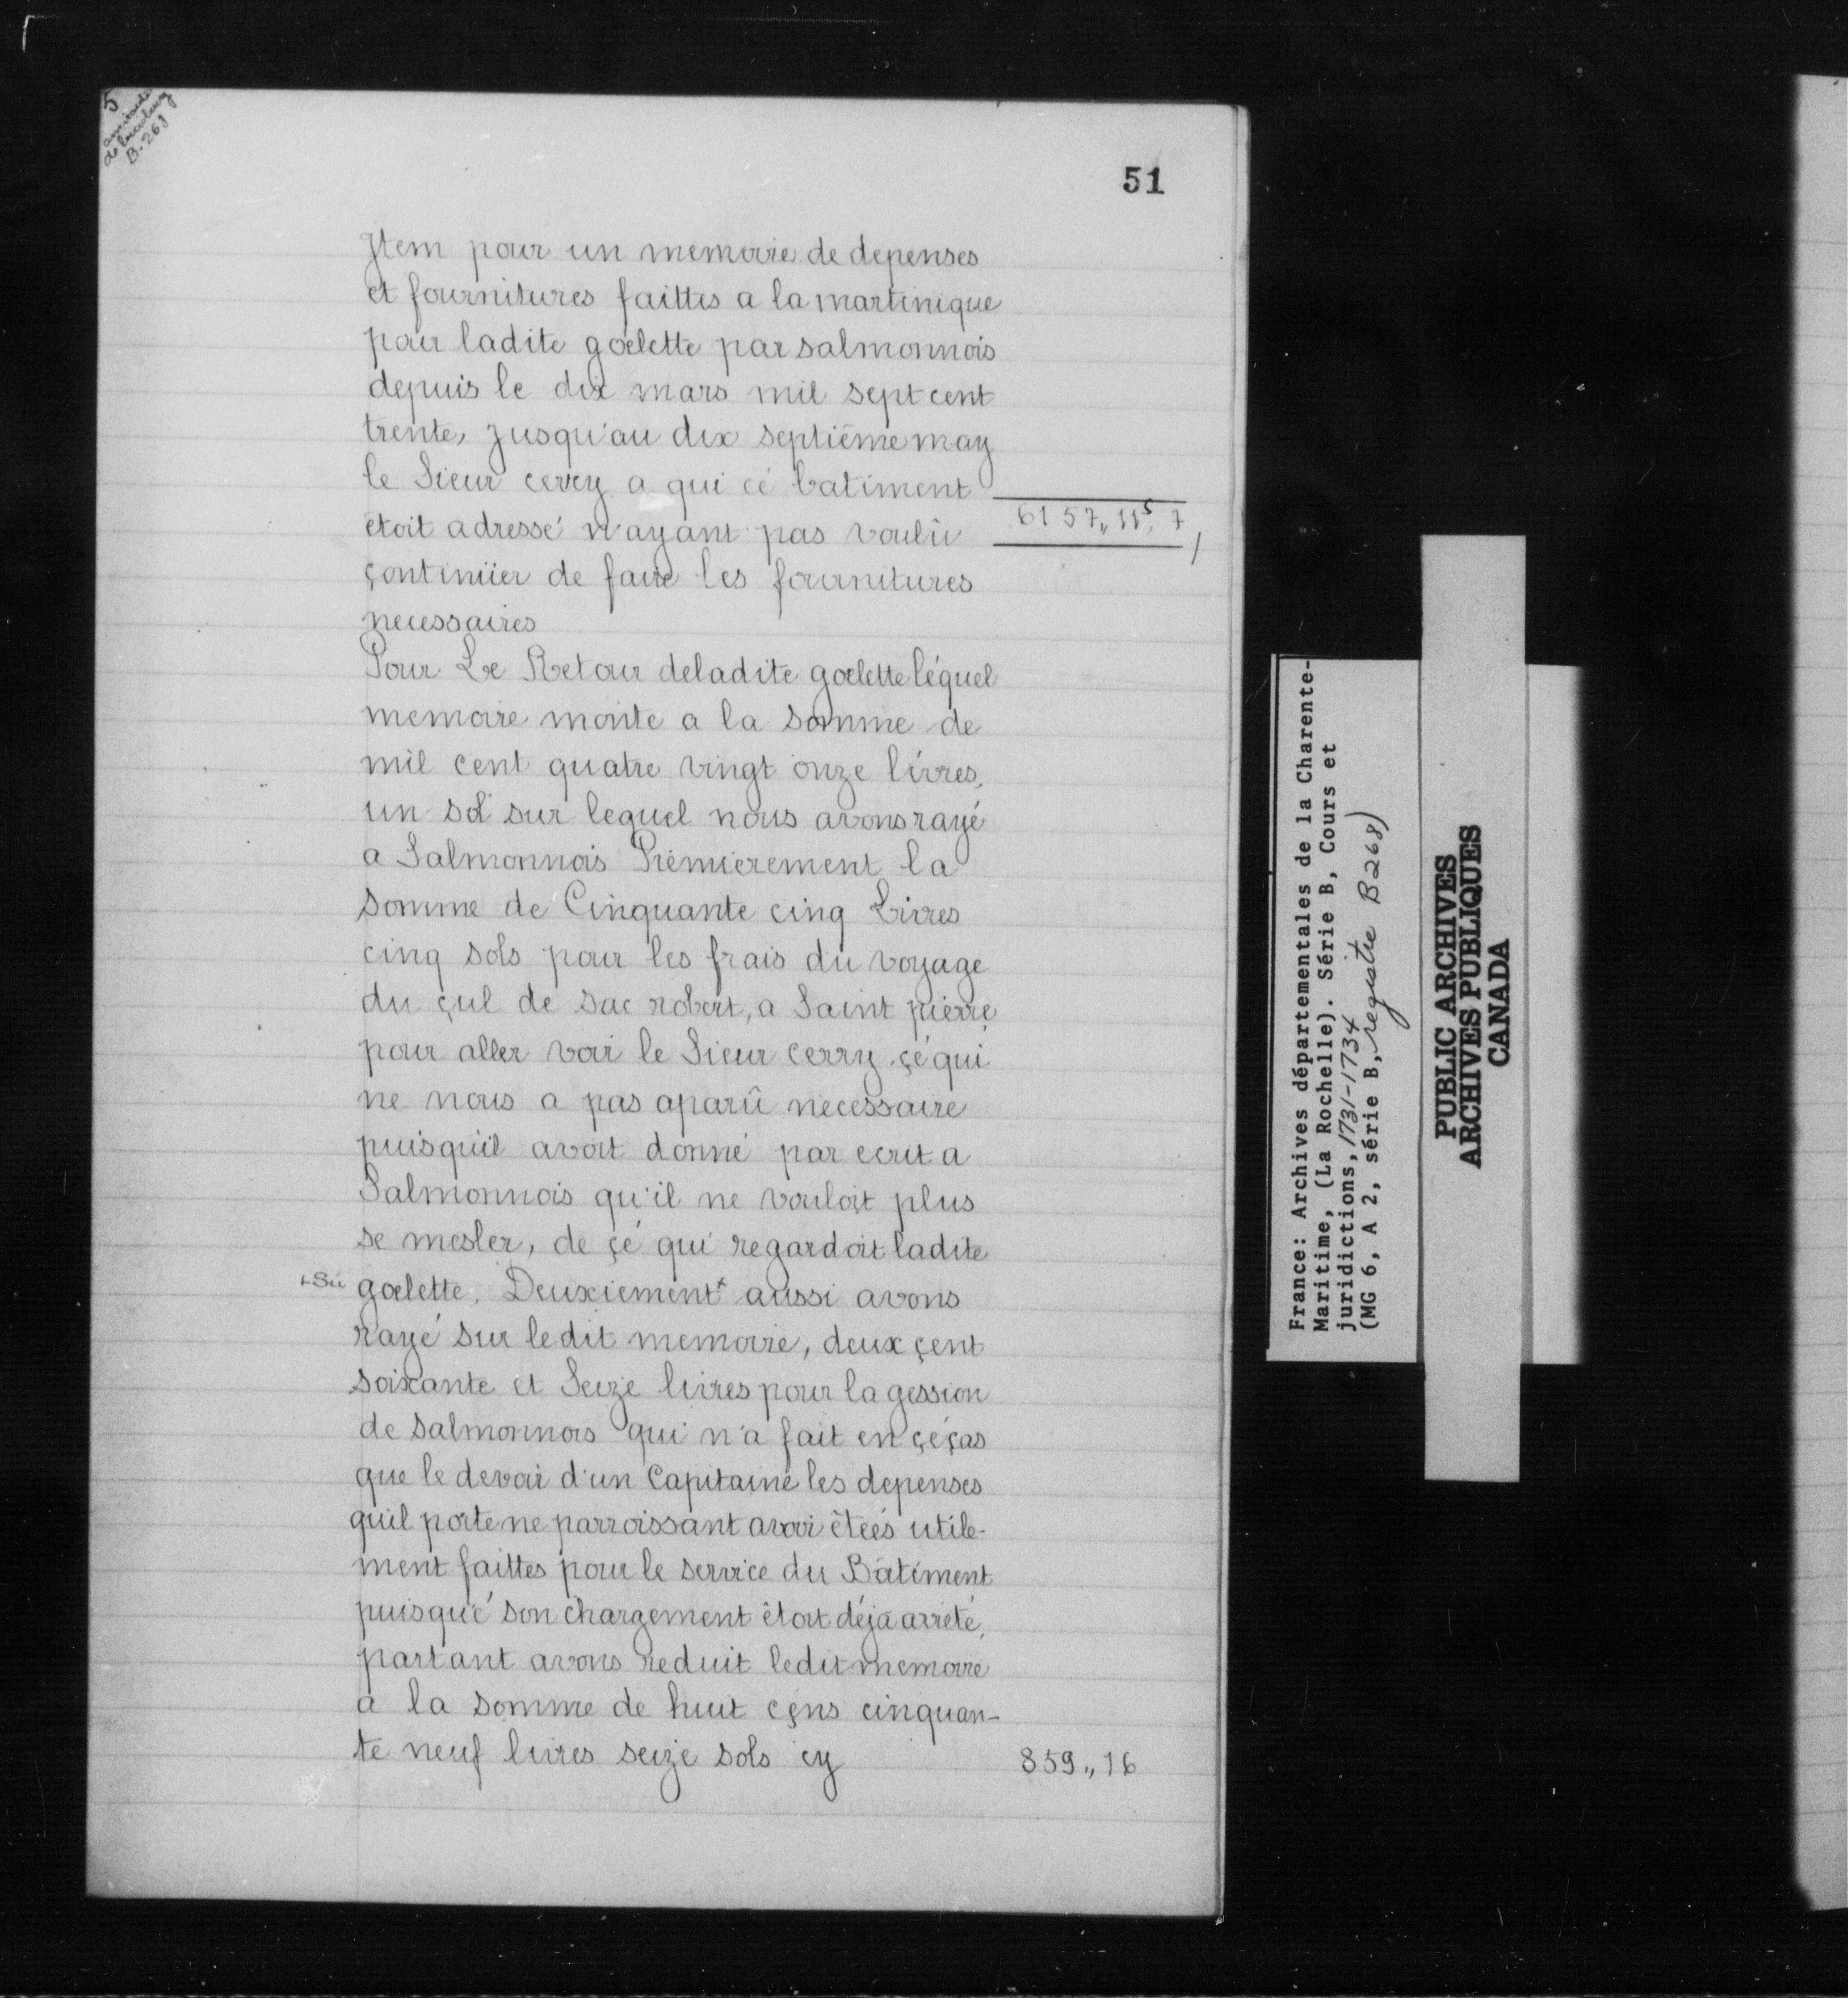 5
amirauté
de louisbourg
B. 268
51
Jtem pour un memoire de depenses
et fournitures faittes a la martinique
pour ladite goelette par salmonnois
depuis le dix mars mil sept cent
trente, jusqu'au dix septiême may
le Sieur cerry a qui cé batiment
etoit adressé n'ayant pas voulû
6157,, 11s, 7
çontinüer de faire les fournitures
necessaires
Pour Le Retour deladite goelette léquel
memoire monte a la somme de
mil cent quatre vingt onze livres,
un sol sur lequel nous avons rayé
a Salmonnois Prémierement la
somme de Cinquante cinq Livres
cinq sols pour les frais du voyage
du çul de sac robert, a Saint pierre
pour aller voir le Sieur cerry çé qui
ne nous a pas aparû necessaire
puisquil avoit donné par ecrit a
Salmonnois qu'il ne vouloit plus
se mesler, de çé qui regardoit ladite
+Sic goelette, Deuxiement+ aussi avons
rayé sur ledit memoire, deux çent
soixante et Seize livres pour la gession
de salmonnois qui n'a fait en çéças
que le devoir d'un Capitaine les depenses
quil porte ne parroissant avoir êteés utile-
ment faittes pour le service du Bâtiment
puisqué son chargement êtoit déja arreté,
partant avons reduit ledit memoire
a la somme de huit çens cinquan-
te neuf livres seize sols cy 859,, 16
France: Archives départementales de la Charente-
Maritime, (La Rochelle). Série B, Cours et
juridictions, 1731-1734
(MG 6, A 2, série B, registre B268)
PUBLIC ARCHIVES
ARCHIVES PUBLIQUES
CANADA